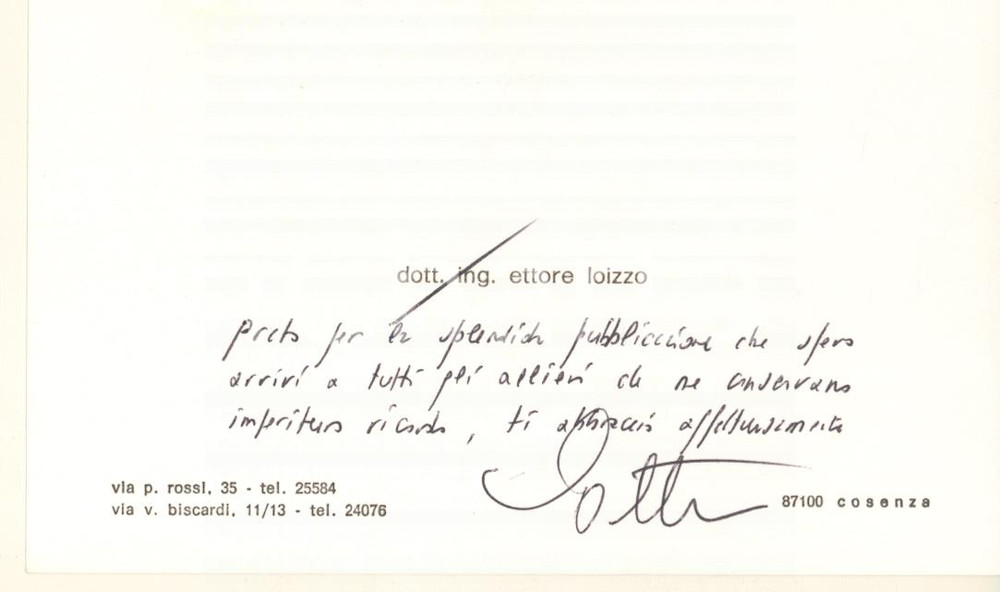 dott. ing. ettore loizzo
grato per la splendida pubblicazione che spero
arrivi a tutti gli allievi che ne conservano
imperituro ricordo, ti abbraccio affettuosamente
Ettore
via p. rossi, 35 - tel. 25584
via v. biscardi, 11/13 - tel. 24076
87100 cosenza